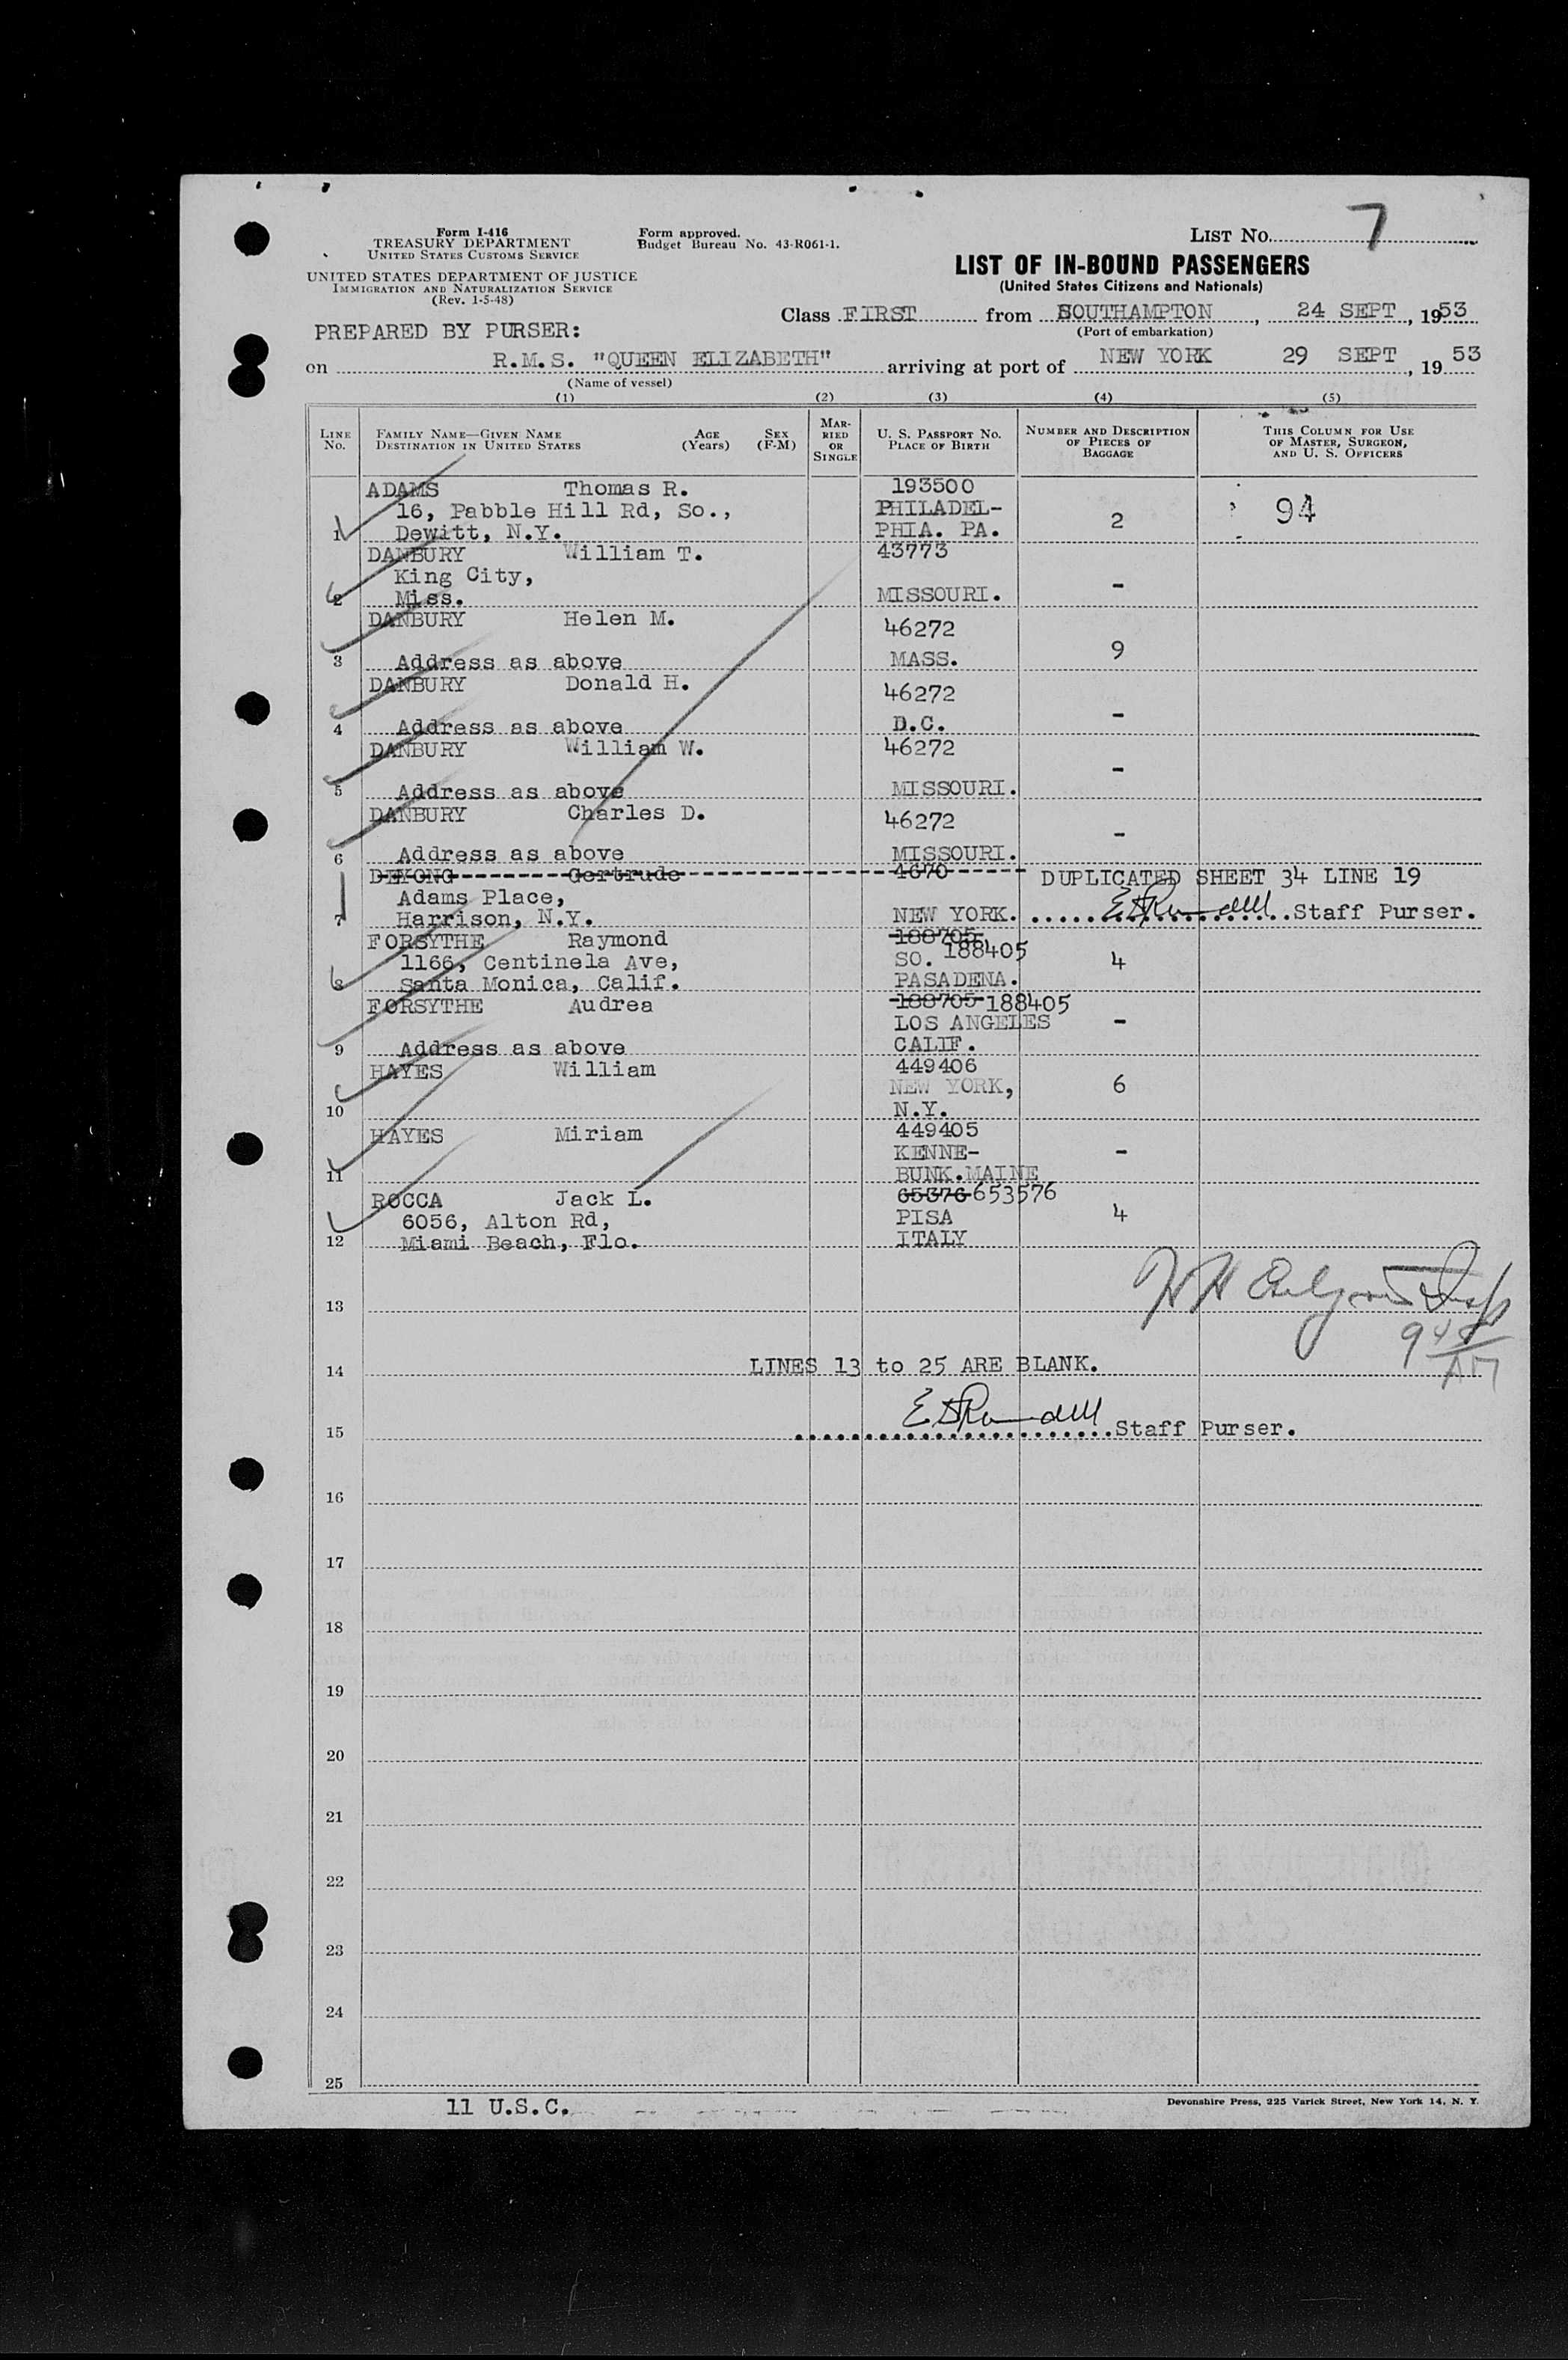 Form I-416
TREASURY DEPARTMENT
UNITED STATES CUSTOMS SERVICE
UNITED STATES DEPARTMENT OF JUSTICE
IMMIGRATION AND NATURALIZATION SERVICE
(Rev. 1-5-48)
Form approved.
Budget Bureau No. 43-R061-1.
LIST No. 7
LIST OF IN-BOUND PASSENGERS
(United States Citizens and Nationals)
Class FIRST from SOUTHAMPTON, 24 SEPT, 1953
(Port of embarkation)
PREPARED BY PURSER:
on R.M.S. "QUEEN ELIZABETH" arriving at port of NEW YORK 29 SEPT, 19 53
(Name of vessel)
(1) (2) (3) (4) (5)
LINE No. FAMILY NAME—GIVEN NAME DESTINATION IN UNITED STATES AGE (Years) SEX (F-M) MARRIED OR SINGLE U. S. PASSPORT NO. PLACE OF BIRTH NUMBER AND DESCRIPTION OF PIECES OF BAGGAGE THIS COLUMN FOR USE OF MASTER, SURGEON, AND U. S. OFFICERS
ADAMS Thomas R. 193500
16, Pabble Hill Rd, So., PHILADEL- 2 94
1 Dewitt, N.Y. PHIA. PA.
DANBURY William T. 43773
King City, -
2 Miss. MISSOURI.
DANBURY Helen M. 46272
3 Address as above MASS. 9
DANBURY Donald H. 46272
4 Address as above D.C. -
DANBURY William W. 46272
5 Address as above MISSOURI. -
DANBURY Charles D. 46272
6 Address as above MISSOURI. -
DEYONG Gertrude 4670 DUPLICATED SHEET 34 LINE 19
Adams Place,
7 Harrison, N.Y. NEW YORK. Staff Purser.
FORSYTHE Raymond 188705 188405
1166, Centinela Ave, SO. 4
8 Santa Monica, Calif. PASADENA.
FORSYTHE Audrea 188705 188405
LOS ANGELES -
9 Address as above CALIF.
HAYES William 449406
NEW YORK, 6
10 N.Y.
HAYES Miriam 449405
KENNE- -
11 BUNK.MAINE
ROCCA Jack L. 65376 653576
6056, Alton Rd, PISA 4
12 Miami Beach, Flo. ITALY
13
945 AM
14 LINES 13 to 25 ARE BLANK.
15 Staff Purser.
16
17
18
19
20
21
22
23
24
25
11 U.S.C.
Devonshire Press, 225 Varick Street, New York 14, N. Y.